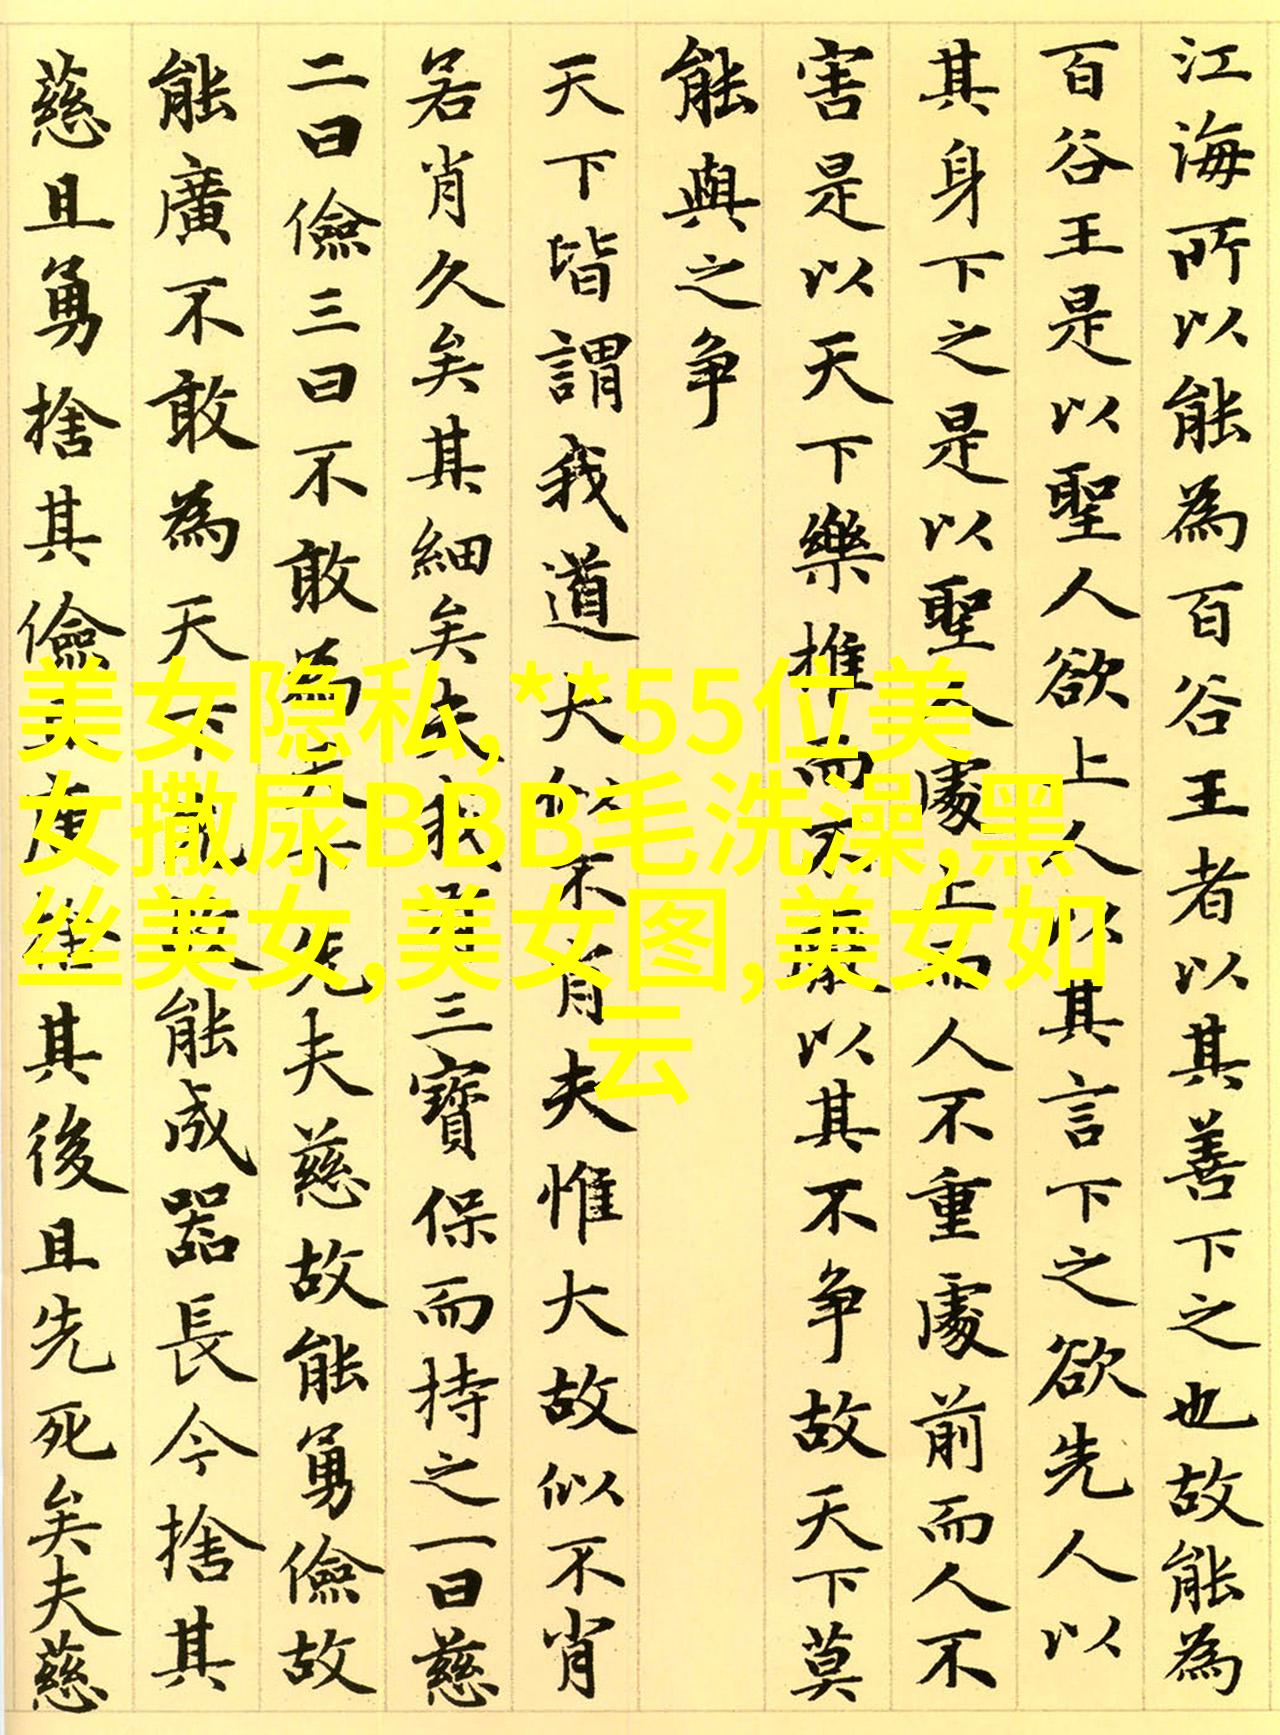 江海所以能為百谷王者以其善下之也故能為
百谷王是以聖人欲上人以其言下之欲先人以
其身下之是以聖人處上而人不重處前而人不
害是以天下樂推而不厭以其不争故天下莫
能與之争
天下皆謂我道大似不肖夫惟大故似不肖
若肖久矣其細矣夫我有三寶保而持之一曰慈
二曰儉三曰不敢為天下先夫慈故能勇儉故
能廣不敢為天下先故能成器長今捨其
慈且勇捨其儉且廣捨其後且先死矣夫慈
美女隐私,**55位美
女撒尿BBB毛洗澡,黑
丝美女,美女图,美女如
云